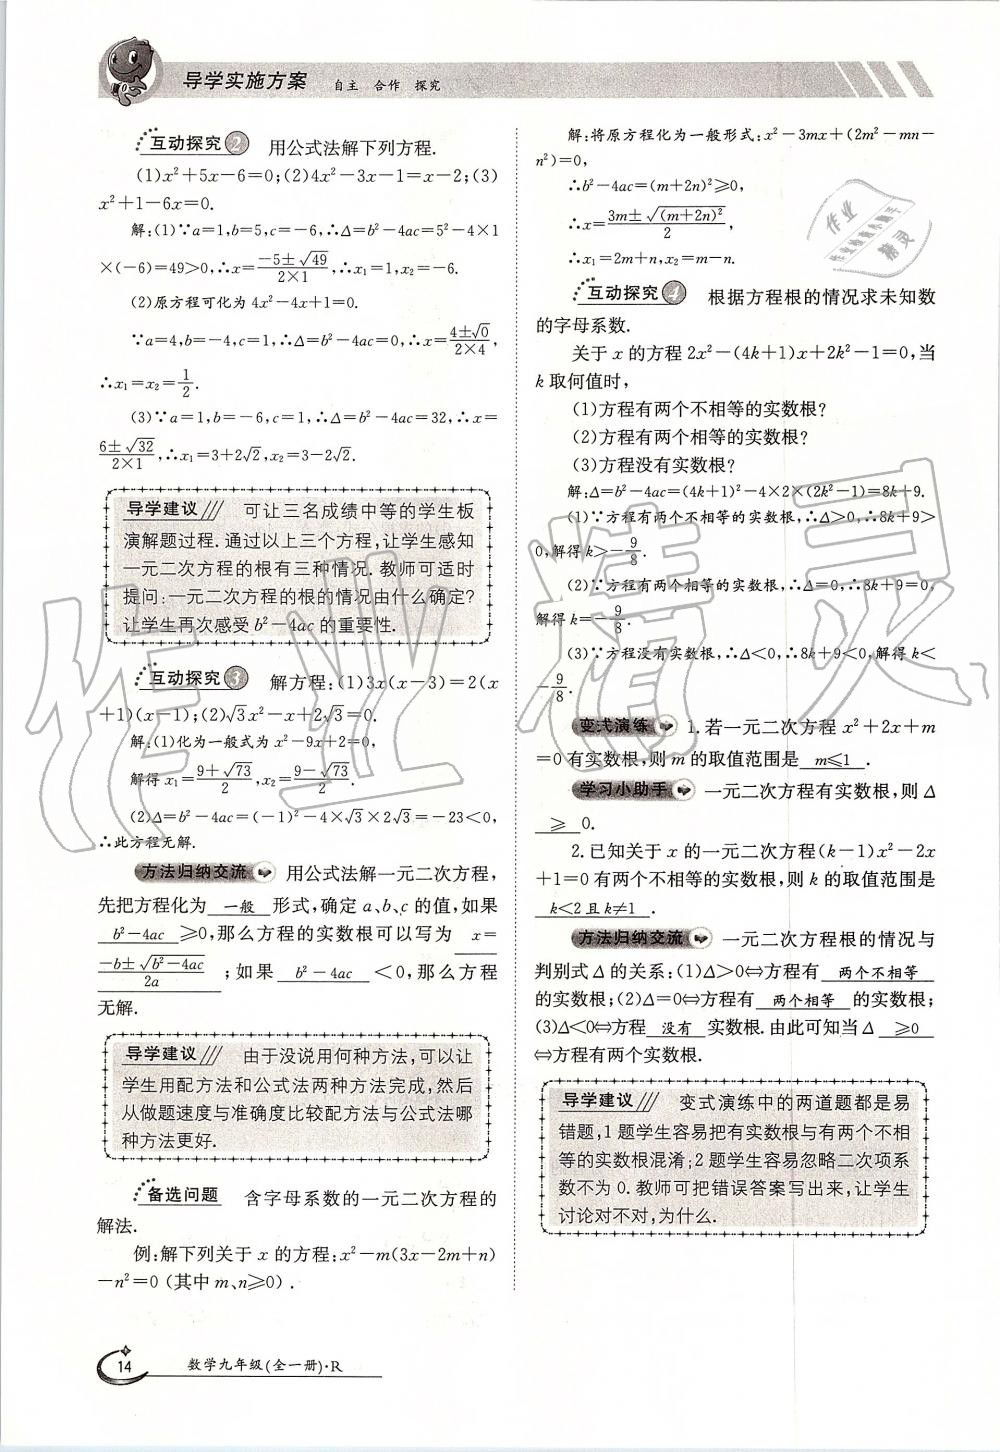 导学实施方案 自主 合作 探究
互动探究2 用公式法解下列方程.
(1)x²+5x-6=0;(2)4x²-3x-1=x-2;(3)
x²+1-6x=0.
解:(1)∵a=1,b=5,c=-6,∴Δ=b²-4ac=5²-4×1
×(-6)=49>0,∴x=(-5±√49)/(2×1),∴x₁=1,x₂=-6.
(2)原方程可化为4x²-4x+1=0.
∵a=4,b=-4,c=1,∴Δ=b²-4ac=0,∴x=(4±√0)/(2×4),
∴x₁=x₂=1/2.
(3)∵a=1,b=-6,c=1,∴Δ=b²-4ac=32,∴x=
(6±√32)/(2×1),∴x₁=3+2√2,x₂=3-2√2.
导学建议/// 可让三名成绩中等的学生板
演解题过程.通过以上三个方程,让学生感知
一元二次方程的根有三种情况.教师可适时
提问:一元二次方程的根的情况由什么确定?
让学生再次感受b²-4ac的重要性.
互动探究3 解方程:(1)3x(x-3)=2(x
+1)(x-1);(2)√3x²-x+2√3=0.
解:(1)化为一般式为x²-9x+2=0,
解得x₁=(9+√73)/2,x₂=(9-√73)/2.
(2)Δ=b²-4ac=(-1)²-4×√3×2√3=-23<0,
∴此方程无解.
方法归纳交流 用公式法解一元二次方程,
先把方程化为 一般 形式,确定a、b、c的值,如果
b²-4ac ≥0,那么方程的实数根可以写为 x=
(-b±√(b²-4ac))/2a ;如果 b²-4ac <0,那么方程
无解.
导学建议/// 由于没说用何种方法,可以让
学生用配方法和公式法两种方法完成,然后
从做题速度与准确度比较配方法与公式法哪
种方法更好.
备选问题 含字母系数的一元二次方程的
解法.
例:解下列关于x的方程:x²-m(3x-2m+n)
-n²=0(其中m、n≥0).
解:将原方程化为一般形式:x²-3mx+(2m²-mn-
n²)=0,
∴b²-4ac=(m+2n)²≥0,
∴x=(3m±√(m+2n)²)/2,
∴x₁=2m+n,x₂=m-n.
互动探究4 根据方程根的情况求未知数
的字母系数.
关于x的方程2x²-(4k+1)x+2k²-1=0,当
k取何值时,
(1)方程有两个不相等的实数根?
(2)方程有两个相等的实数根?
(3)方程没有实数根?
解:Δ=b²-4ac=(4k+1)²-4×2×(2k²-1)=8k+9.
(1)∵方程有两个不相等的实数根,∴Δ>0,∴8k+9>
0,解得k>-9/8.
(2)∵方程有两个相等的实数根,∴Δ=0,∴8k+9=0,
解得k=-9/8.
(3)∵方程没有实数根,∴Δ<0,∴8k+9<0,解得k<
-9/8.
变式演练 1.若一元二次方程x²+2x+m
=0有实数根,则m的取值范围是 m≤1 .
学习小助手 一元二次方程有实数根,则Δ
≥ 0.
2.已知关于x的一元二次方程(k-1)x²-2x
+1=0有两个不相等的实数根,则k的取值范围是
k<2且k≠1 .
方法归纳交流 一元二次方程根的情况与
判别式Δ的关系:(1)Δ>0⇔方程有 两个不相等
的实数根;(2)Δ=0⇔方程有 两个相等 的实数根;
(3)Δ<0⇔方程 没有 实数根.由此可知当Δ ≥0
⇔方程有两个实数根.
导学建议/// 变式演练中的两道题都是易
错题,1题学生容易把有实数根与有两个不相
等的实数根混淆;2题学生容易忽略二次项系
数不为0.教师可把错误答案写出来,让学生
讨论对不对,为什么.
14 数学九年级(全一册)·R
作业精灵
作业
精灵